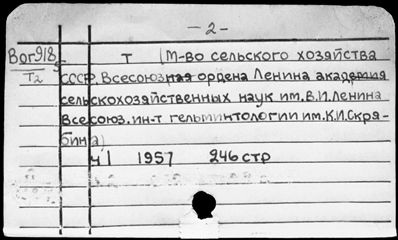 - 2 -
Вог918
Т2
т (М-во сельского хозяйства
СССР. Всесоюзная ордена Ленина академия
сельскохозяйственных наук им. В.И.Ленина
Всесоюз. ин-т гельминтологии им. К.И.Скря-
бина)
ч1 1957 246 стр